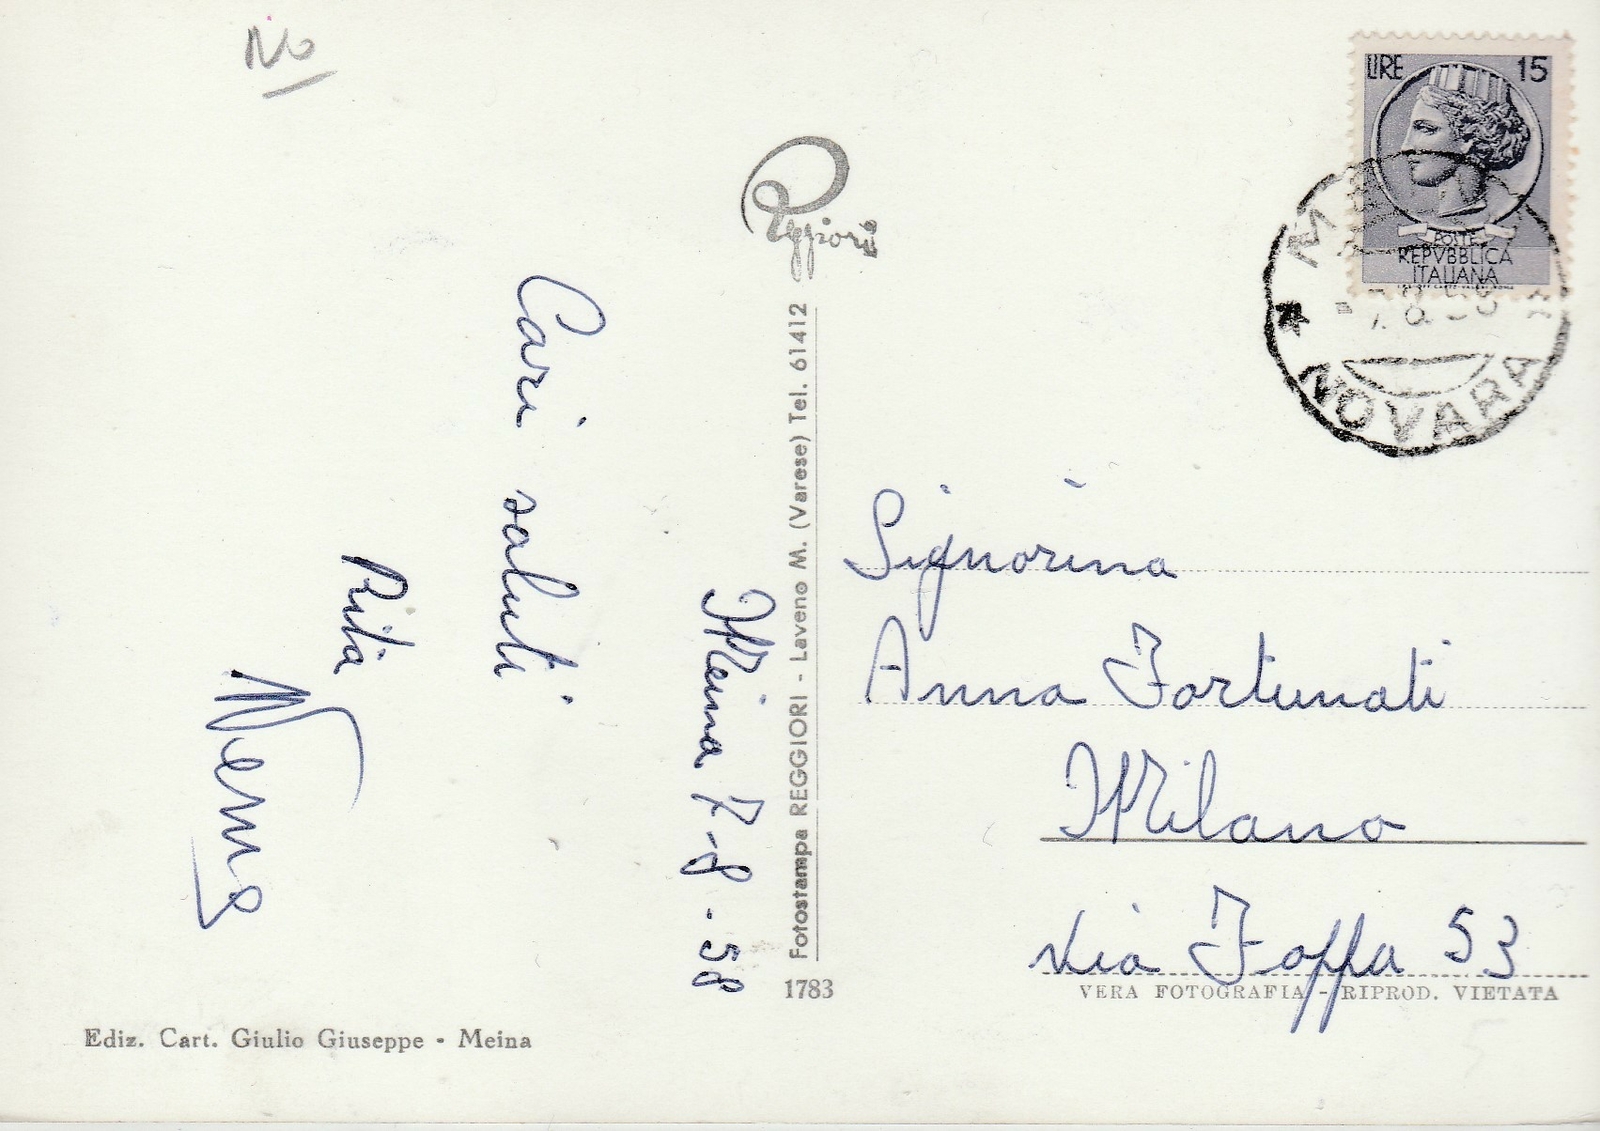 No
Meina 7-8-58
Cari saluti
Rita
Reggiori
Fotostampa REGGIORI - Laveno M. (Varese) Tel. 61412
1783
Ediz. Cart. Giulio Giuseppe - Meina
LIRE 15
POSTE
REPVBBLICA
ITALIANA
NOVARA
Signorina
Anna Fortunati
Milano
Via Foppa 53
VERA FOTOGRAFIA - RIPROD. VIETATA